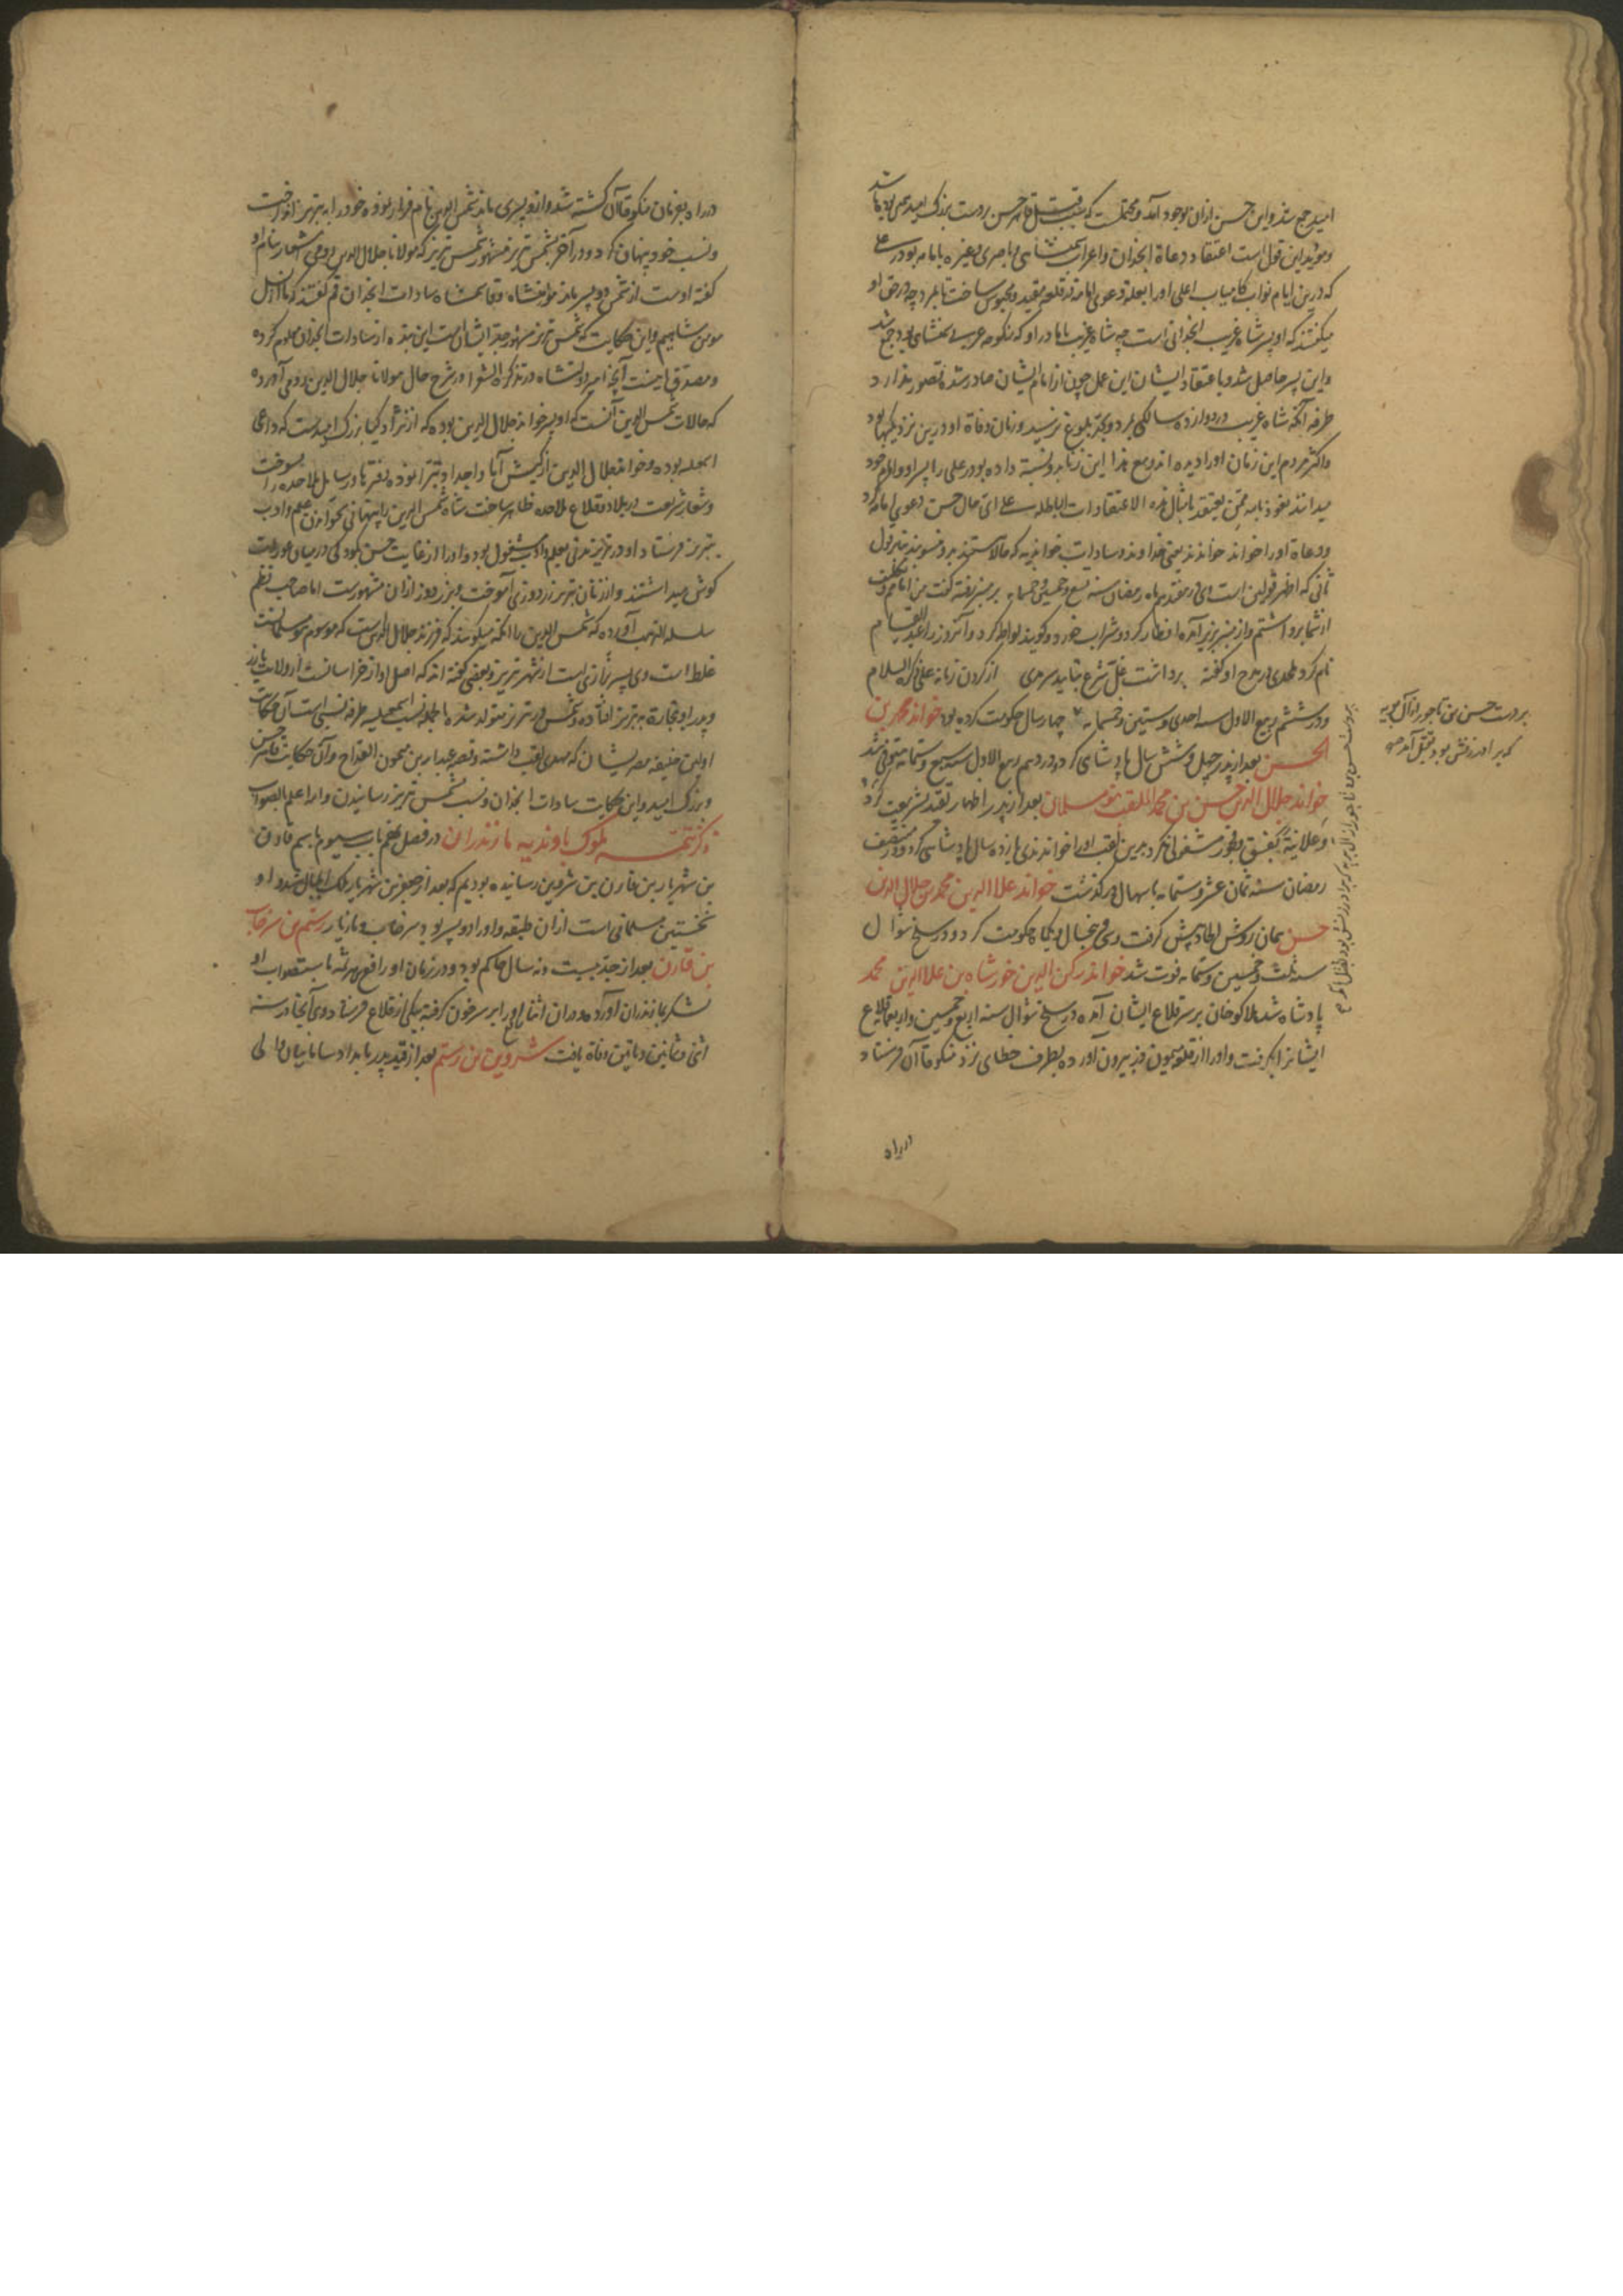 امید جمع شد و این حسن ازان بوجود آمد و محتملست که سبب قتل ظاهر حسن بر دست بزرک امید همین بوده باشد
و مؤید این قول است اعتقاد دعاة انجدان و اعراب
که درین ایام نواب کامیاب اعلی او را بعلة دعوی امامة در قلعه مقید و محبوس ساخت تا بمرد چه در حق او
میکفتند که او پسر شاه غریب انجدانی است چه شاه غریب با مادر او که منکوحه بود جمع شد
و این پسر حاصل شد و با اعتقاد ایشان این عمل چون از امام ایشان صادر شد تصور ندارد
طرفه آنکه شاه غریب در دوازده سالکی بمرد و بحد بلوغ نرسید و زمان وفاة او درین نزدیکیها بود
و اکثر مردم این زمان او را دیده اند و مع هذا این زنا بدو نسبة داده بودند علی را پسر او و امام خود
میدانند نعوذ بالله ممن یعتقد بامثال هذه الاعتقادات الباطلة علی ای حال حسن دعوی امامة کرد
و دعاة او را خواند خواندند یعنی خداوند و سادات خواندیه که حالا هستند بدو منسوبند بنابر قول
ثانی که اظهر قولین است او در هفتدهم ماه رمضان سنه تسع و خمسین و خمسمایه بر منبر رفته کفت من امامم و تکلیف
از شما برداشتم و از منبر بزیر آمده افطار کرد و شراب خورد و کویند لواطه کرد و آنروز را عید القیام
نام کرد ملحدی در مدح او کفته برداشت غل شرع بتایید سرمدی از کردن زمانه علی ذکره السلام
و در ششم ربیع الاول سنه احدی و ستین و خمسمایه چهار سال حکومت کرده بود خواند محمد بن
الحسن بعد از پدر چهل و شش سال پادشاهی کرد و در دهم ربیع الاول سنه سبع و ستمایه متوفی شد
خواند جلال الدین حسن بن محمد الملقب بنومسلمان بعد از پدر اظهار تقید بشریعت کرد
و علانیة بفسق و فجور مشغولی نکرد بدین لقب او را خواندندی یازده سال پادشاهی کرد و در منتصف
رمضان سنه ثمان عشر و ستمایه باسهال درکذشت خواند علاالدین محمد بن جلال الدین
حسن همان روش الحاد پیش کرفت و سی و پنجسال و یکماه حکومت کرد و در سلخ شوال
سنه ثلث و خمسین و ستمایه فوت شد خواند رکن الدین خورشاه بن علاالدین محمد
پادشاه شد هلاکو خان بر سر قلاع ایشان آمده در سلخ شوال سنه اربع و خمسین و ستمایه قلاع
ایشانرا بکرفت و او را از قلعه میمون دز بیرون آورده بطرف خطای نزد منکوقاآن فرستاد
در راه
بر دست حسن بن ناجور از آل بویه
که برادر زنش بود بقتل آمد صح
بر دست حسن بن ناجور از آل بویه که برادر زنش بود بقتل آمد
در راه بفرمان منکوقاآن کشته شد و ازو پسری ماند شمس الدین نام فرار نموده خود را به تبریز انداخت
و نسب خود پنهان کرد و در آخر بشمس تبریز مشهور شمس تبریز که مولانا جلال الدین رومی اشعار بنام او
کفته اوست از شمس دو پسر ماند مؤمنشاه و قاسمشاه سادات انجدان قم کفتند که ما از نسل
مومن شاهیم و این حکایت که شمس تبریز مشهور جد ایشان است این بنده از سادات انجدان معلوم کرده
و مصدق اینست آنچه امیر دولتشاه در تذکرة الشعرا در شرح حال مولانا جلال الدین رومی آورده
که حالات شمس الدین آنست که او پسر خواند جلال الدین بوده که از نژاد کیا بزرک امیدست که داعی
اسمعیلیه بوده و خواند جلال الدین از کیش آبا و اجداد تبرا نموده دفترها و رسایل ملاحده را بسوخت
و شعار شریعت در بلاد و قلاع ملاحده ظاهر ساخت شاه شمس الدین را پنهانی بخواندن علم و ادب
بتبریز فرستاد و او در تبریز مدتی بعلم و ادب مشغول بود و او را از غایت حسن کودکی در میان عورات
کوش میداشتند و از زنان تبریز زردوزی آموخت و بزردوز ازان مشهورست اما صاحب نظم
سلسلة الذهب آورده که شمس الدین را آنکه میکویند که فرزند جلال الدین است که موسوم بنومسلمانست
غلط است وی پسر بزازی است از شهر تبریز و بعضی کفته اند که اصل او از خراسانست از ولایت بازر
و پدر او بتجارة به تبریز افتاده و شمس در تبریز متولد شده بالجمله نسب اسمعیلیه طرفه نسبی است آن حکایت
اولین خلیفه مصر ایشان که مهدی لقب داشته و قصه عبدالله بن میمون القداح و آن حکایت ظاهر حسن
و بزرک امید و این حکایت سادات انجدان و نسب بشمس تبریز رسانیدن والله اعلم بالصواب
ذکر تتمه ملوک باوندیه مازندران در فصل نهم باب سیوم باسم قارن
بن شهریار بن قارن بن شروین رسانیده بودیم که بعد از جعفر بن شهریار ملک الجبال شد و او
نخستین مسلمانی است ازان طبقه و او را دو پسر بود سرخاب و مازیار رستم بن سرخاب
بن قارن بعد از جد بیست و نه سال حاکم بود و در زمان او رافع بن هرثمه باستصواب او
لشکر بمازندران آورد و در ان اثنا او را بر سر خوان کرفته بیکی از قلاع فرستاد وی آنجا در سنه
اثنی و ثمانین و مایتین وفاة یافت شروین بن رستم بعد از قید پدر بامداد سامانیان والی